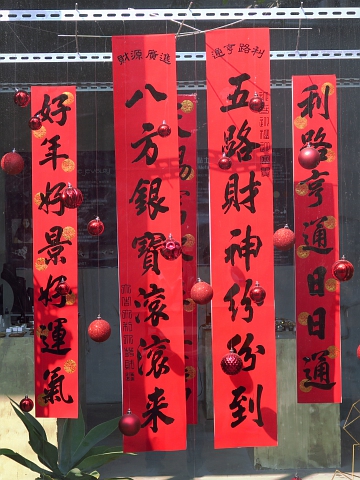 利路亨通日日通
利路亨通
五路財神紛紛到
財源廣進
八方銀寶滾滾來
好年好景好運氣